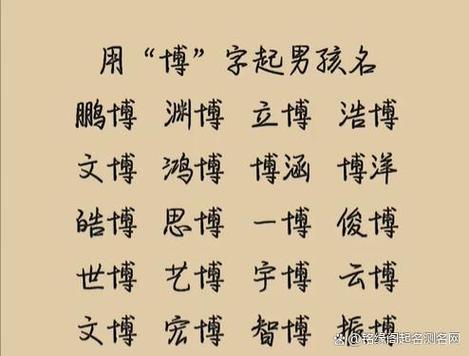 用“博”字起男孩名
鹏博 渊博 立博 浩博
文博 鸿博 博涵 博洋
皓博 思博 一博 俊博
世博 艺博 宇博 云博
文博 宏博 智博 振博
铭缘阁起名测名网